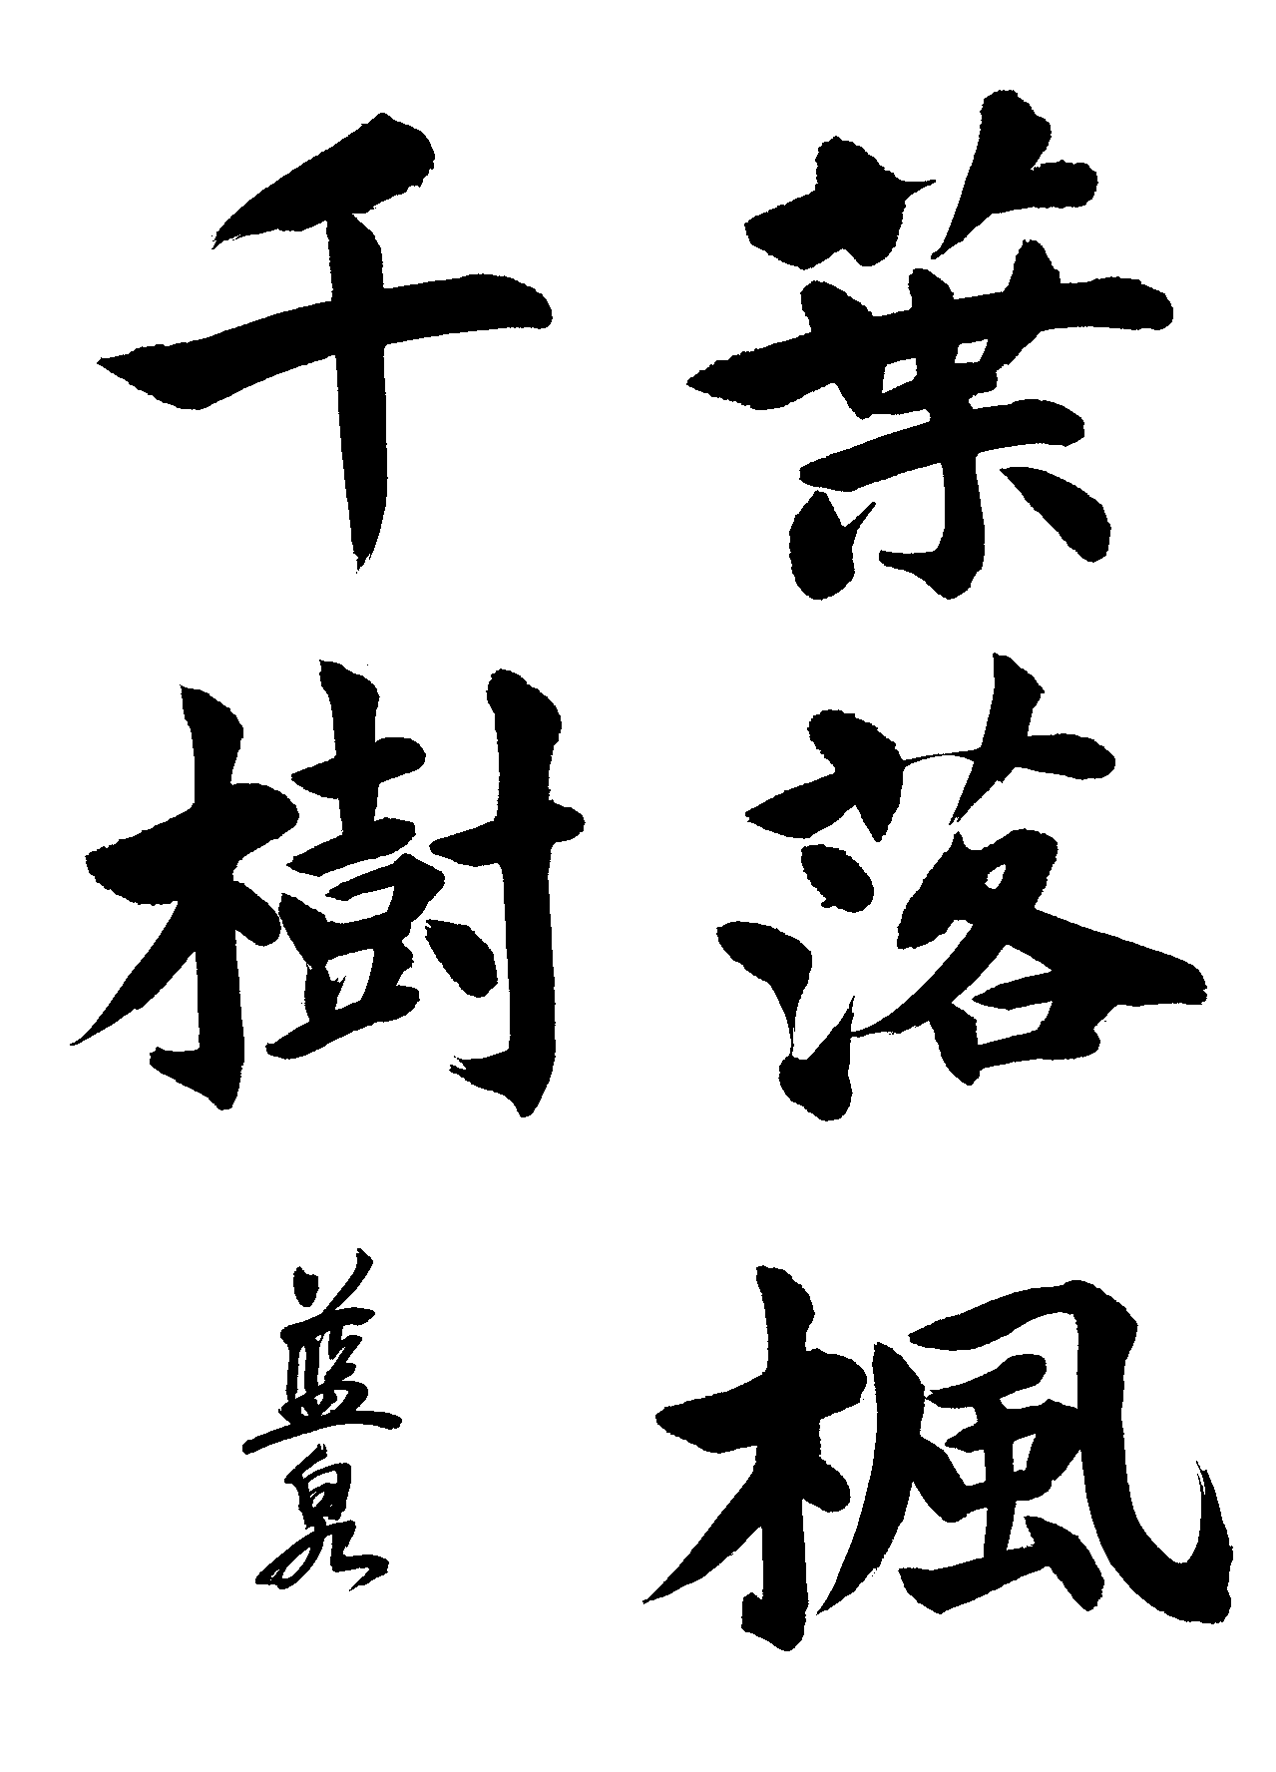 葉落楓
千樹
藍泉